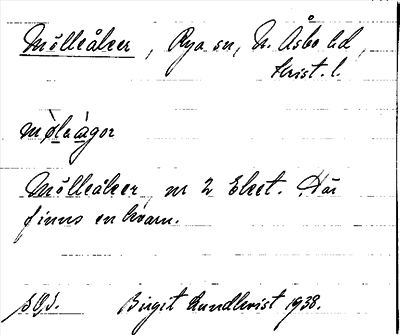 Mölleåker, Rya sn, N. Åsbo hd,
Krist. l.
mø̀lǝágǝr
Mölleåker, nr 2 Eket. Här
finns en kvarn.
Birgit Rundkvist 1938.